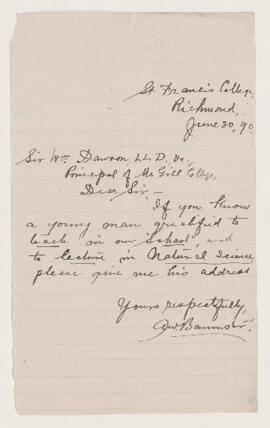 St Francis College,
Richmond,
June 30, 90
Sir Wm Dawson LL.D. &c,
Principal of McGill College,
Dear Sir. —
If you know
a young man qualified to
teach in our School, and
to lecture in Natural Science
please give me his address
Yours respectfully,
Bannister